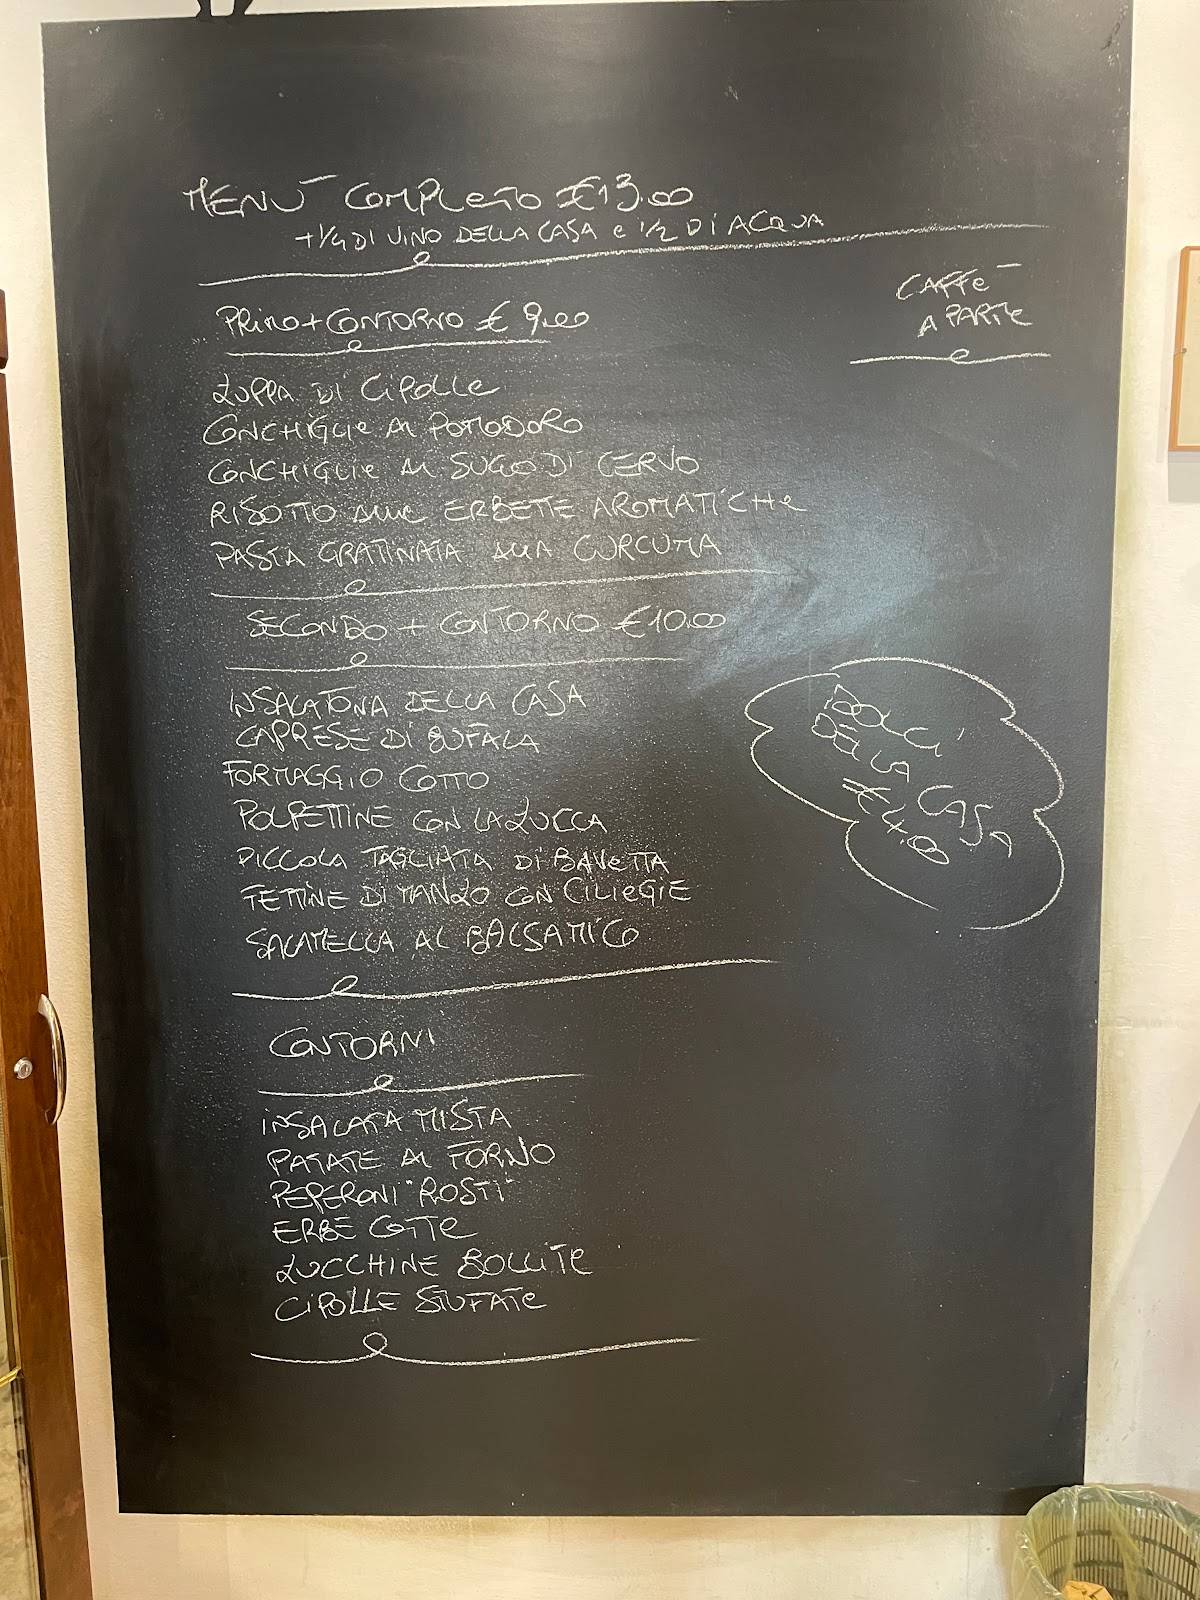 MENÙ COMPLETO €13,00
+ 1/4 DI VINO DELLA CASA e 1/2 DI ACQUA
CAFFè
A PARTe
PRIMO + CONTORNO € 9,00
ZUPPA DI CIPOLLe
CONCHIGLIe AL POMODORO
CONCHIGLIe AL SUGO DI CERVO
RISOTTO ALLe ERBETTE AROMATICHe
PASTA GRATINATA ALLA CURCUMA
SECONDO + CONTORNO €10,00
INSALATONA DELLA CASA
CAPRESE DI BUFALA
FORMAGGIO COTTO
POLPETTINE CON LA ZUCCA
PICCOLA TAGLIATA DI BAVETTA
FETTINE DI MANZO CON CILIEGIE
SALAMELLA AL BALSAMICO
DOLCI
DELLA CASA
€ 4,00
CONTORNI
INSALATA MISTA
PATATE AL FORNO
PEPERONI "ROSTI"
ERBE COTTe
ZUCCHINE BOLLITe
CIPOLLE STUFATe